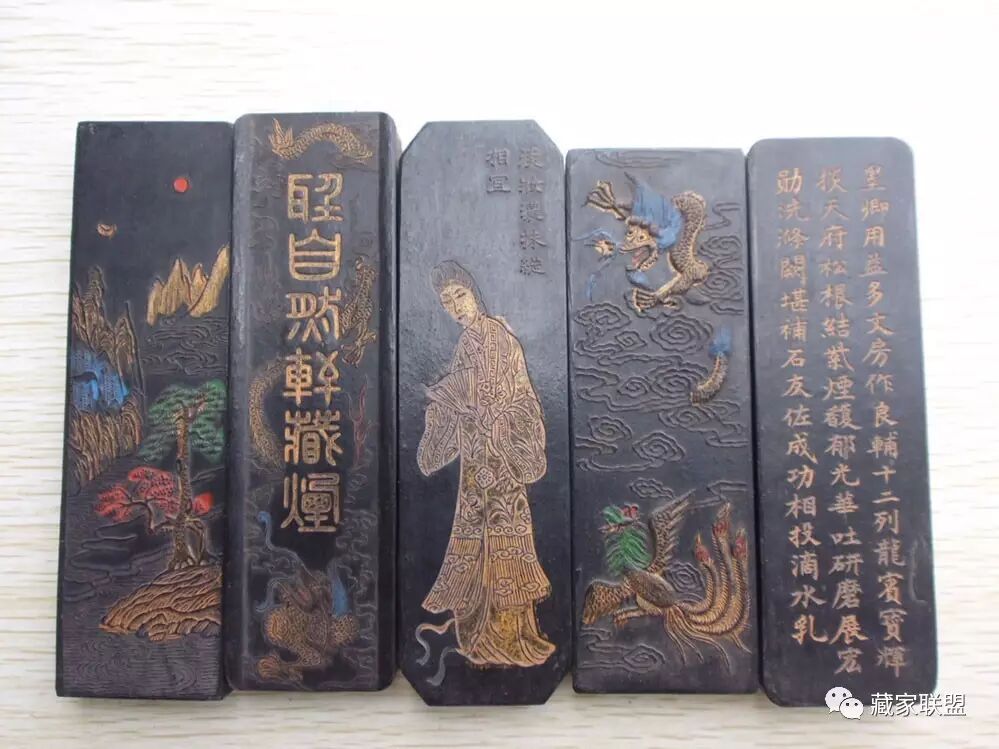 自然軒藏煙
淡妝濃抹總
相宜
皇卿用益多文房作良輔十二列龍賓寶輝
掞天府松根結氣煙馥郁光華吐研磨展宏
勛洗滌闕堪補石友佐成功相投滴水乳
藏家联盟